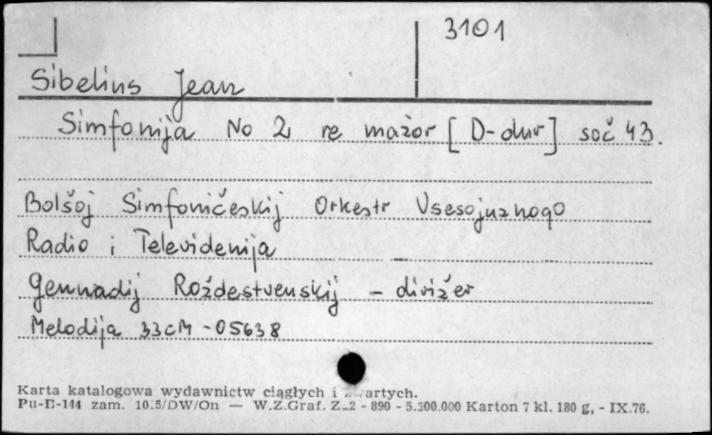 3101
Sibelius Jean
Simfonija No 2 re mažor [D-dur] soč 43.
Bolšoj Simfoničeskij Orkestr Vsesojuznogo
Radio i Televidenija
Gennadij Roždestvenskij - dirižer
Melodija 33CM - 05638
Karta katalogowa wydawnictw ciągłych i zwartych.
Pu-E-144 zam. /DW/On — W.Z.Graf. - 890 - 5.300.000 Karton 7 kl. 180 g, - IX.76.